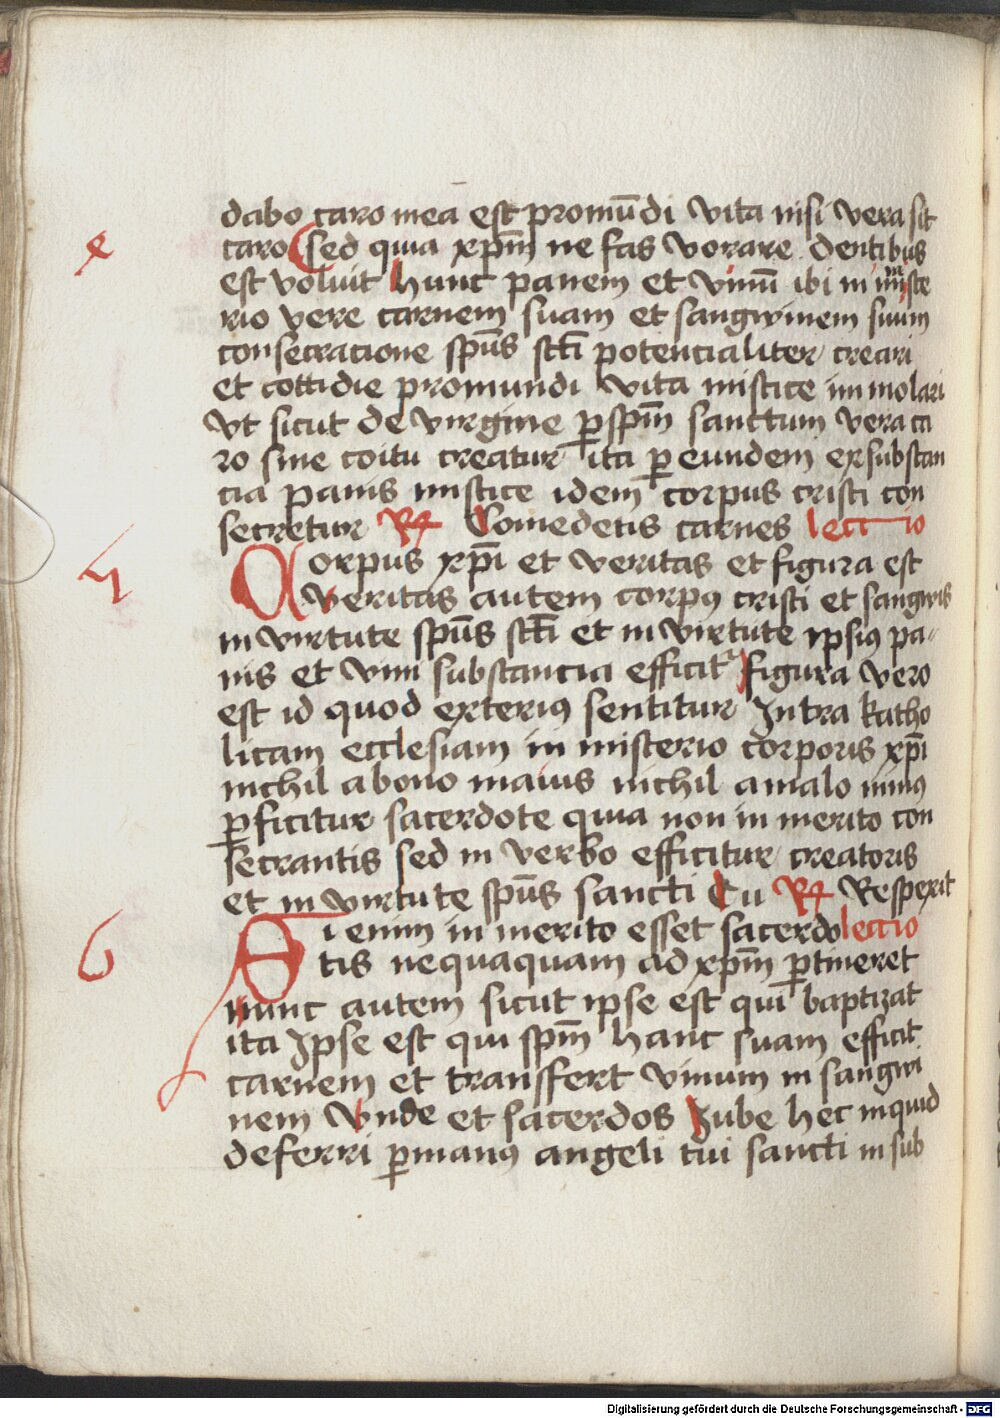 dabo caro mea est promūdi vita nisi vera sit
e
caro sed quia xp̄m ne fas vorare dentibus
est voluit hunc panem et vinū ibi in miste
rio vere carnem suam et sangwinem suum
consecracione sp̄us sc̄ti potencialiter creari
et cottidie promundi vita mistice immolari
vt sicut de virgine ꝑsp̄m sanctum vera ca
ro sine coitu creatur ita ꝑ eundem exsubstan
cia panis mistice idem corpus cristi con
secretur R̷ Comedetis carnes lectio
5
Corpus xp̄i et veritas et figura est
veritas autem corpꝯ cristi et sangwis
in virtute sp̄us sc̄ti et in virtute ipsiꝯ pa
nis et vini substancia efficit᷑ figura vero
est id quod exteriꝯ sentitur Intra katho
licam ecclesiam in misterio corporis xp̄i
nichil abono maius nichil amalo minꝯ
ꝑficitur sacerdote quia non in merito con
secrantis sed in verbo efficitur creatoris
et in virtute sp̄us sancti Cu R̷ Respexit
6
Si enim in merito esset sacerdo lectio
tis nequaquam ad xp̄m ꝑtineret
nunc autem sicut ipse est qui baptizat
ita Ipse est qui sp̄m hanc suam efficit
carnem et transffert vinum in sangwi
nem Vnde et sacerdos Iube hec inquid
deferri ꝑmanꝯ angeli tui sancti in sub
Digitalisierung gefördert durch die Deutsche Forschungsgemeinschaft - DFG